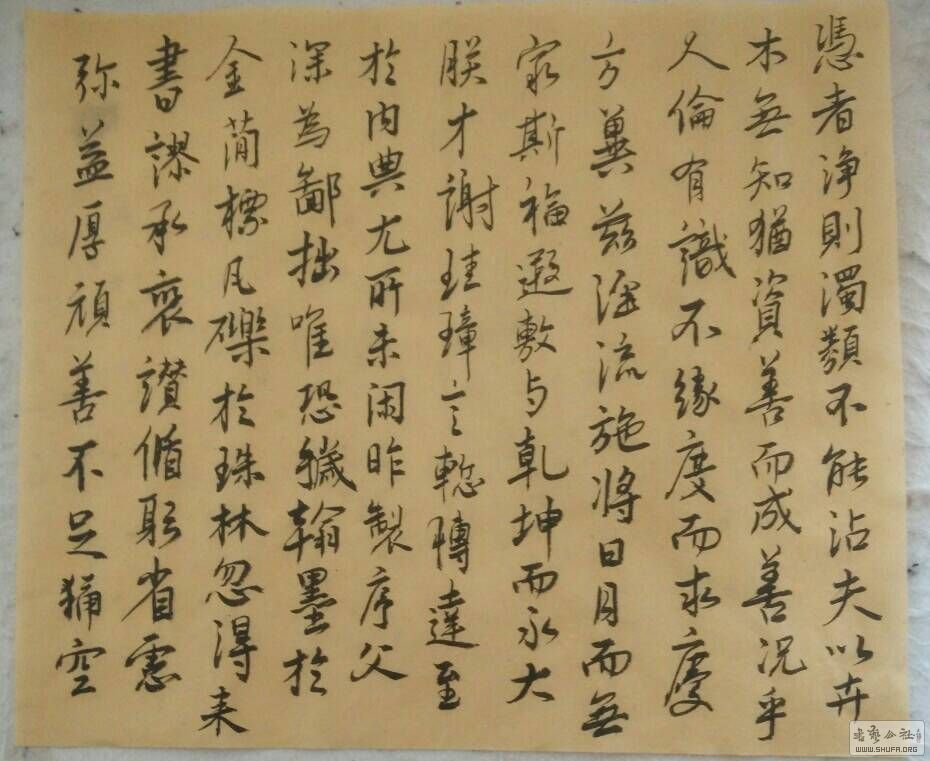 憑者浄則濁類不能沾夫以卉
木無知猶資善而成善況乎
人倫有識不緣慶而求慶
方冀茲經流施將日月而無
窮斯福遐敷与乾坤而永大
朕才謝珪璋言慙博達至
於内典尤所未閑昨製序文
深為鄙拙唯恐穢翰墨於
金簡標瓦礫於珠林忽得来
書謬承褒讃循躬省慮
弥益厚顔善不足稱空
書藝公社
WWW.SHUFA.ORG